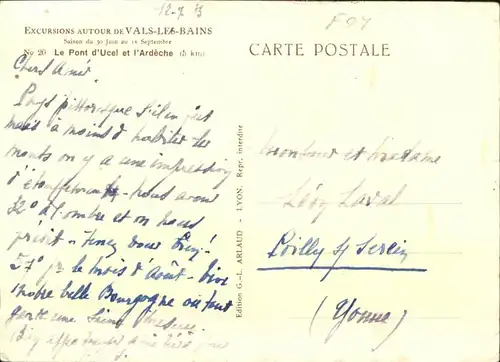 12-7 3
F07
EXCURSIONS AUTOUR DE VALS-LES-BAINS
Saison du 30 Juin au 15 Septembre
No 20 Le Pont d'Ucel et l'Ardèche (5 km)
CARTE POSTALE
Chers Amis
Pays pittoresque s'il en est
mais à moins d'habiter les
monts on y a une impression
d'étouffement. nous avons
32° à l'ombre et on nous
prédit - Tenez vous bien!-
57° pr le mois d'Août - Vive
notre belle Bourgogne où tout
garde une
Edition G.-L. ARLAUD - LYON. Repr. interdite
Monsieur et Madame
Léon Laval
Poilly s/ Serein
(Yonne)